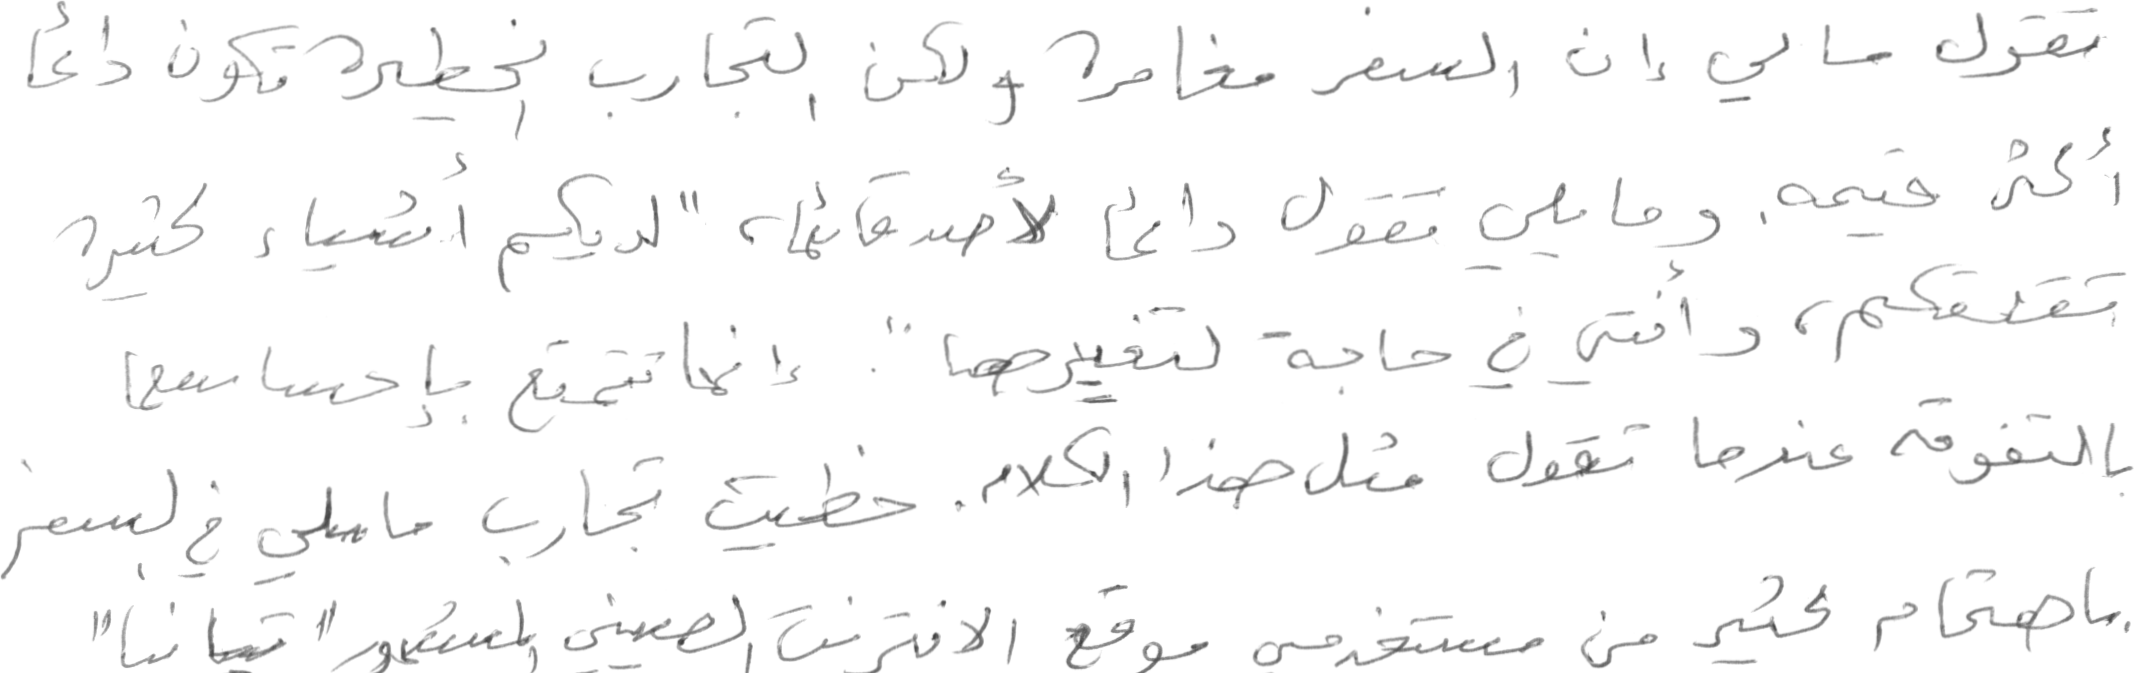 تقول مالي إن السفر مغامرة ولكن التجارب الخطيرة تكون دائما
أكثر قيمة. ومايلي تقول دائما لأصدقائها، "لديكم أشياء كثيرة
تقلقكم، وأنتي في حاجة لتغييرها". إنها تتمتع بإحساسها
بالتفوق عندما تقول مثل هذا الكلام. حظيت تجارب مايلي في السفر
باهتمام كثير من مستخدمي موقع الانترنت الصيني المشهور "تيانا"